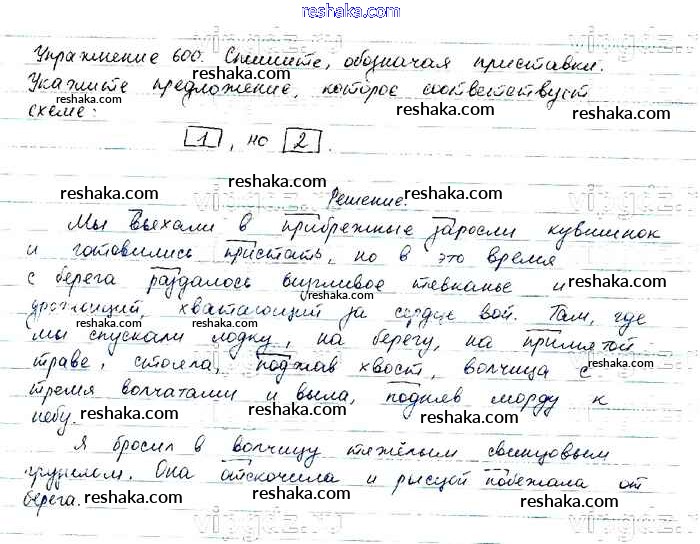 reshaka.com
Упражнение 600. Спишите, обозначая приставки.
reshaka.com
Укажите предложение, которое соответствует
reshaka.com reshaka.com
схеме:
1, но 2.
reshaka.com reshaka.com
Решение
Мы въехали в прибрежные заросли кувшинок
reshaka.com reshaka.com
и готовились пристать, но в это время
с берега раздалось визгливое тявканье и
reshaka.com reshaka.com
дрожащий, хватающий за сердце вой. Там, где
reshaka.com
мы спускали лодку, на берегу, на примятой
reshaka.com reshaka.com
траве, стояла, поджав хвост, волчица с
reshaka.com
тремя волчатами и выла, подняв морду к
небу. reshaka.com reshaka.com
Я бросил в волчицу тяжёлым свинцовым
reshaka.com reshaka.com
грузилом. Она отскочила и рысцой побежала от
берега. reshaka.com reshaka.com